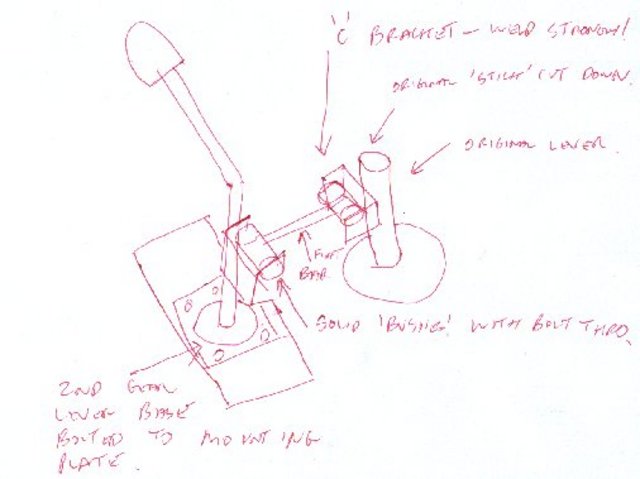 'C' BRACKET - WELD STRONGLY!
ORIGINAL 'STICK' CUT DOWN.
ORIGINAL LEVER.
FLAT
BAR.
SOLID 'BUSHES' WITH BOLT THRO.
2ND GEAR
LEVER BASE
BOLTED TO MOUNTING
PLATE.